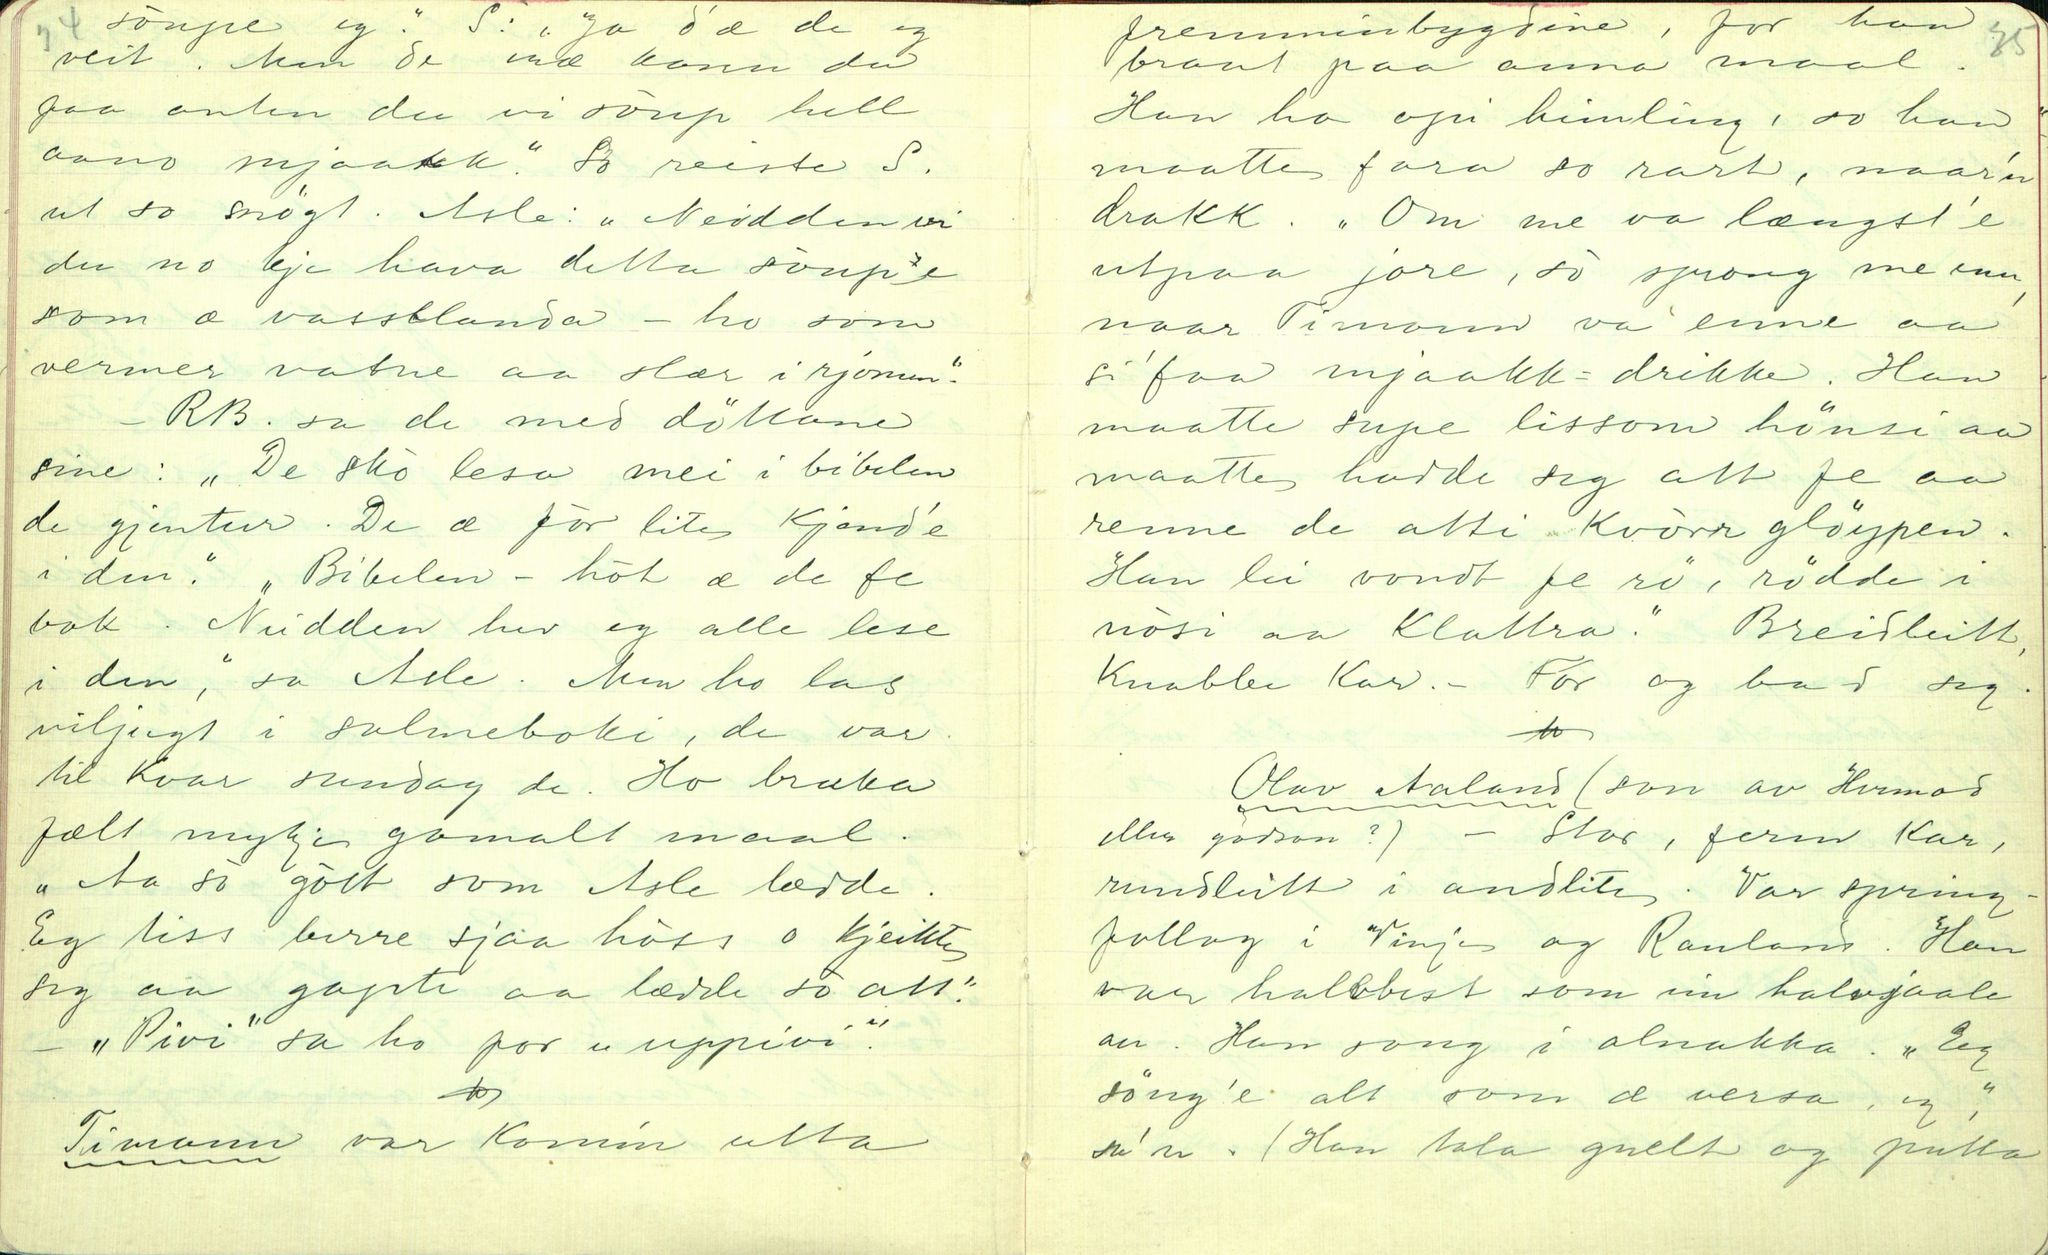 74
söupe eg." S: "Ja d'æ de eg
veit. Men de mæ kann du
faa anten du vi söup hell
aano mjaakk." So reiste S.
ut so snögt. Asle: "Neidden vi
du no kje hava detta söup'e
som æ vassblanda – ho som
vermer vatne aa slær i rjomen".
– RB. sa de med döttane
sine: "De sko lesa mei i bibelen
de gjentur. De æ för lite kjend'e
i den." "Bibelen – höt æ de fe
bok. Neidden hev eg alle lese
i den," sa Asle. Men ho las
viljugt i salmeboki, de var
til kvar sundag de. Ho bruka
fælt mykje gamalt maal.
"Aa so gött som Asle lædde.
Eg tiss berre sjaa höss o kjeikte
seg aa gapte aa lædde so att".
– "Pivi" sa ho for "uppivi".
Timann var komin utta
75
fremminbygdine, for han
braut paa anna maal.
Han ha opi himling, so han
maatte fara so rart, naar'n
drakk. "Om me va længst'e
utpaa jore, so sprong me inn,
naar Timann va' enne aa
si' faa mjaakk-drikke. Han
maatte supe lissom hönsi aa
maatte hadde seg att fe aa
renne de atti kvorr glöypen.
Han lei vondt fe rö, rödde i
nosi aa klattra." Breidleitt,
knabbe kar. – For og bad seg.
Olav Aaland (son av Hermod
eller godson?) – Stor, ferm kar,
rundleitt i andlite. Var spring-
fallag i Vinje og Rauland. Han
var halvbest som ein halvgaale
au. Han song i alnakka. "Eg
söng'e alt som æ versa, eg,"
sa'n. (Han tala gnelt og putta